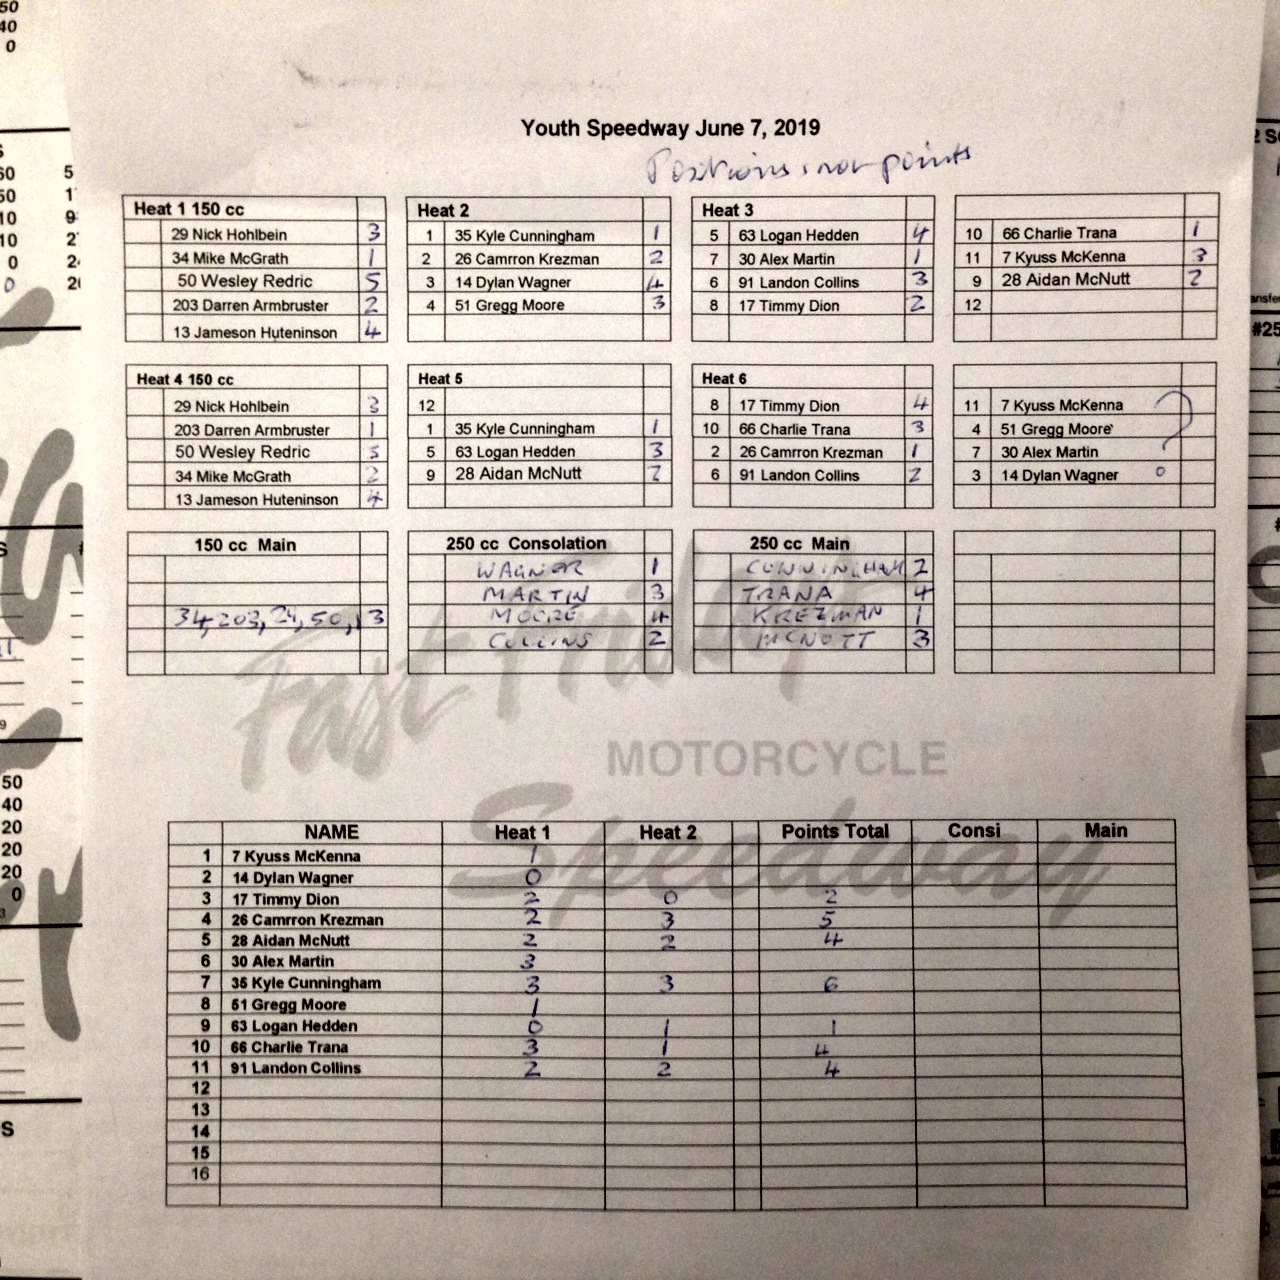 Youth Speedway June 7, 2019
Positions, not points
Heat 1 150 cc
29 Nick Hohlbein 3
34 Mike McGrath 1
50 Wesley Redric 5
203 Darren Armbruster 2
13 Jameson Huteninson 4
Heat 2
1 35 Kyle Cunningham 1
2 26 Camrron Krezman 2
3 14 Dylan Wagner 4
4 51 Gregg Moore 3
Heat 3
5 63 Logan Hedden 4
7 30 Alex Martin 1
6 91 Landon Collins 3
8 17 Timmy Dion 2
10 66 Charlie Trana 1
11 7 Kyuss McKenna 3
9 28 Aidan McNutt 2
12
Heat 4 150 cc
29 Nick Hohlbein 3
203 Darren Armbruster 1
50 Wesley Redric 5
34 Mike McGrath 2
13 Jameson Huteninson 4
Heat 5
12
1 35 Kyle Cunningham 1
5 63 Logan Hedden 3
9 28 Aidan McNutt 2
Heat 6
8 17 Timmy Dion 4
10 66 Charlie Trana 3
2 26 Camrron Krezman 1
6 91 Landon Collins 2
11 7 Kyuss McKenna ?
4 51 Gregg Moore
7 30 Alex Martin
3 14 Dylan Wagner
150 cc Main
34, 203, 29, 50, 13
250 cc Consolation
WAGNER 1
MARTIN 3
MOORE 4
COLLINS 2
250 cc Main
CUNNINGHAM 2
TRANA 4
KREZMAN 1
MCNUTT 3
Fast Friday
MOTORCYCLE
Speedway
NAME Heat 1 Heat 2 Points Total Consi Main
1 7 Kyuss McKenna 1
2 14 Dylan Wagner 0
3 17 Timmy Dion 2 0 2
4 26 Camrron Krezman 2 3 5
5 28 Aidan McNutt 2 2 4
6 30 Alex Martin 3
7 35 Kyle Cunningham 3 3 6
8 51 Gregg Moore 1
9 63 Logan Hedden 0 1 1
10 66 Charlie Trana 3 1 4
11 91 Landon Collins 2 2 4
12
13
14
15
16